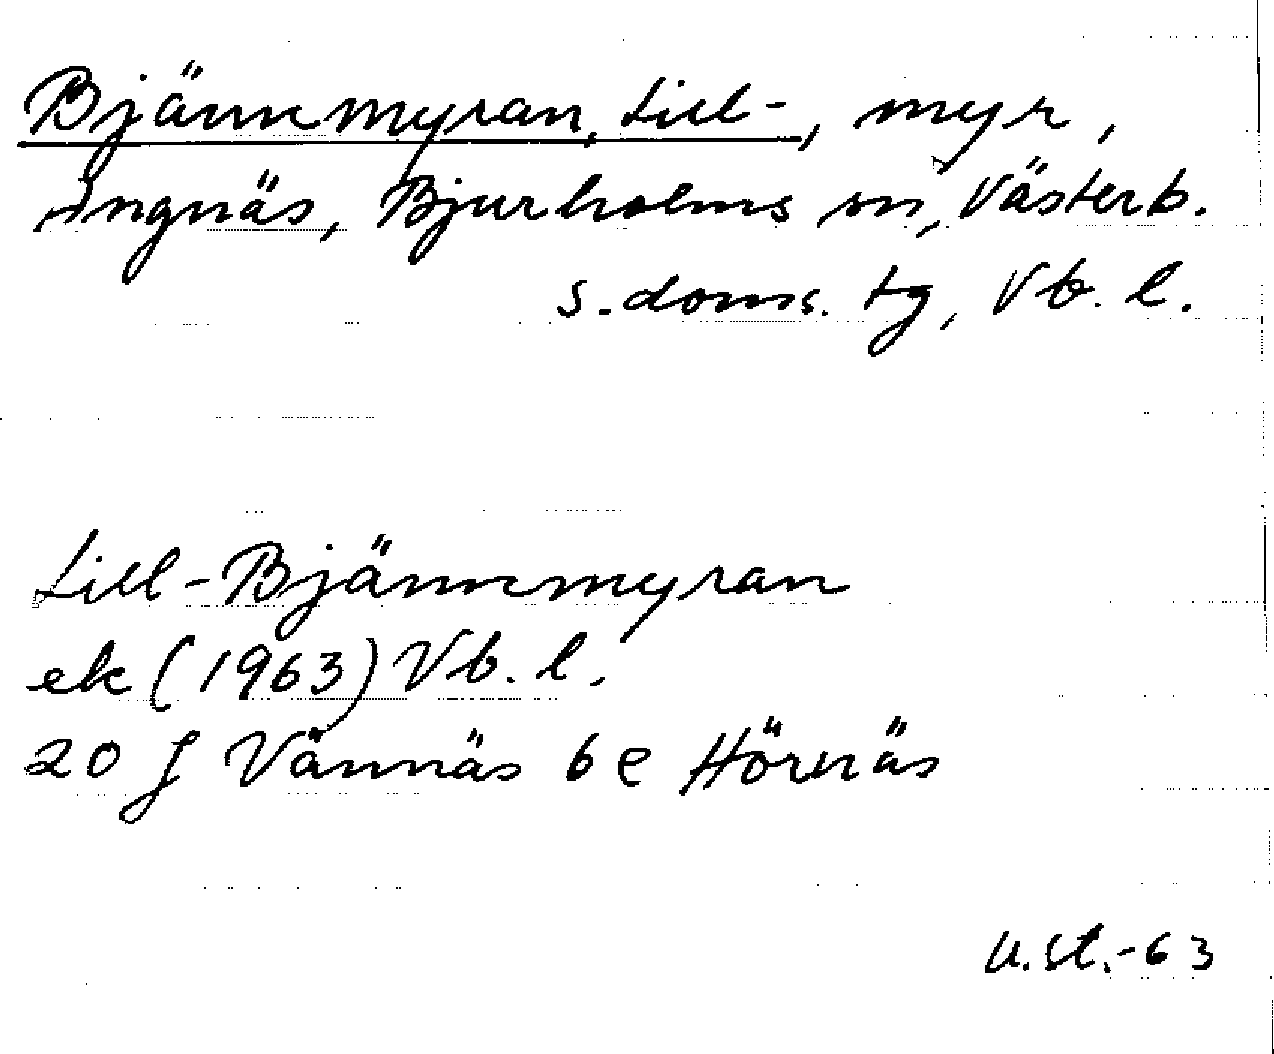 Bjännmyran, Lill-, myr,
Angnäs, Bjurholms sn, Västerb.
s. doms. tg, Vb. l.
Lill-Bjännmyran
ek (1963) Vb. l.
20 J Vännäs 6 e Hörnäs
U.St.-63